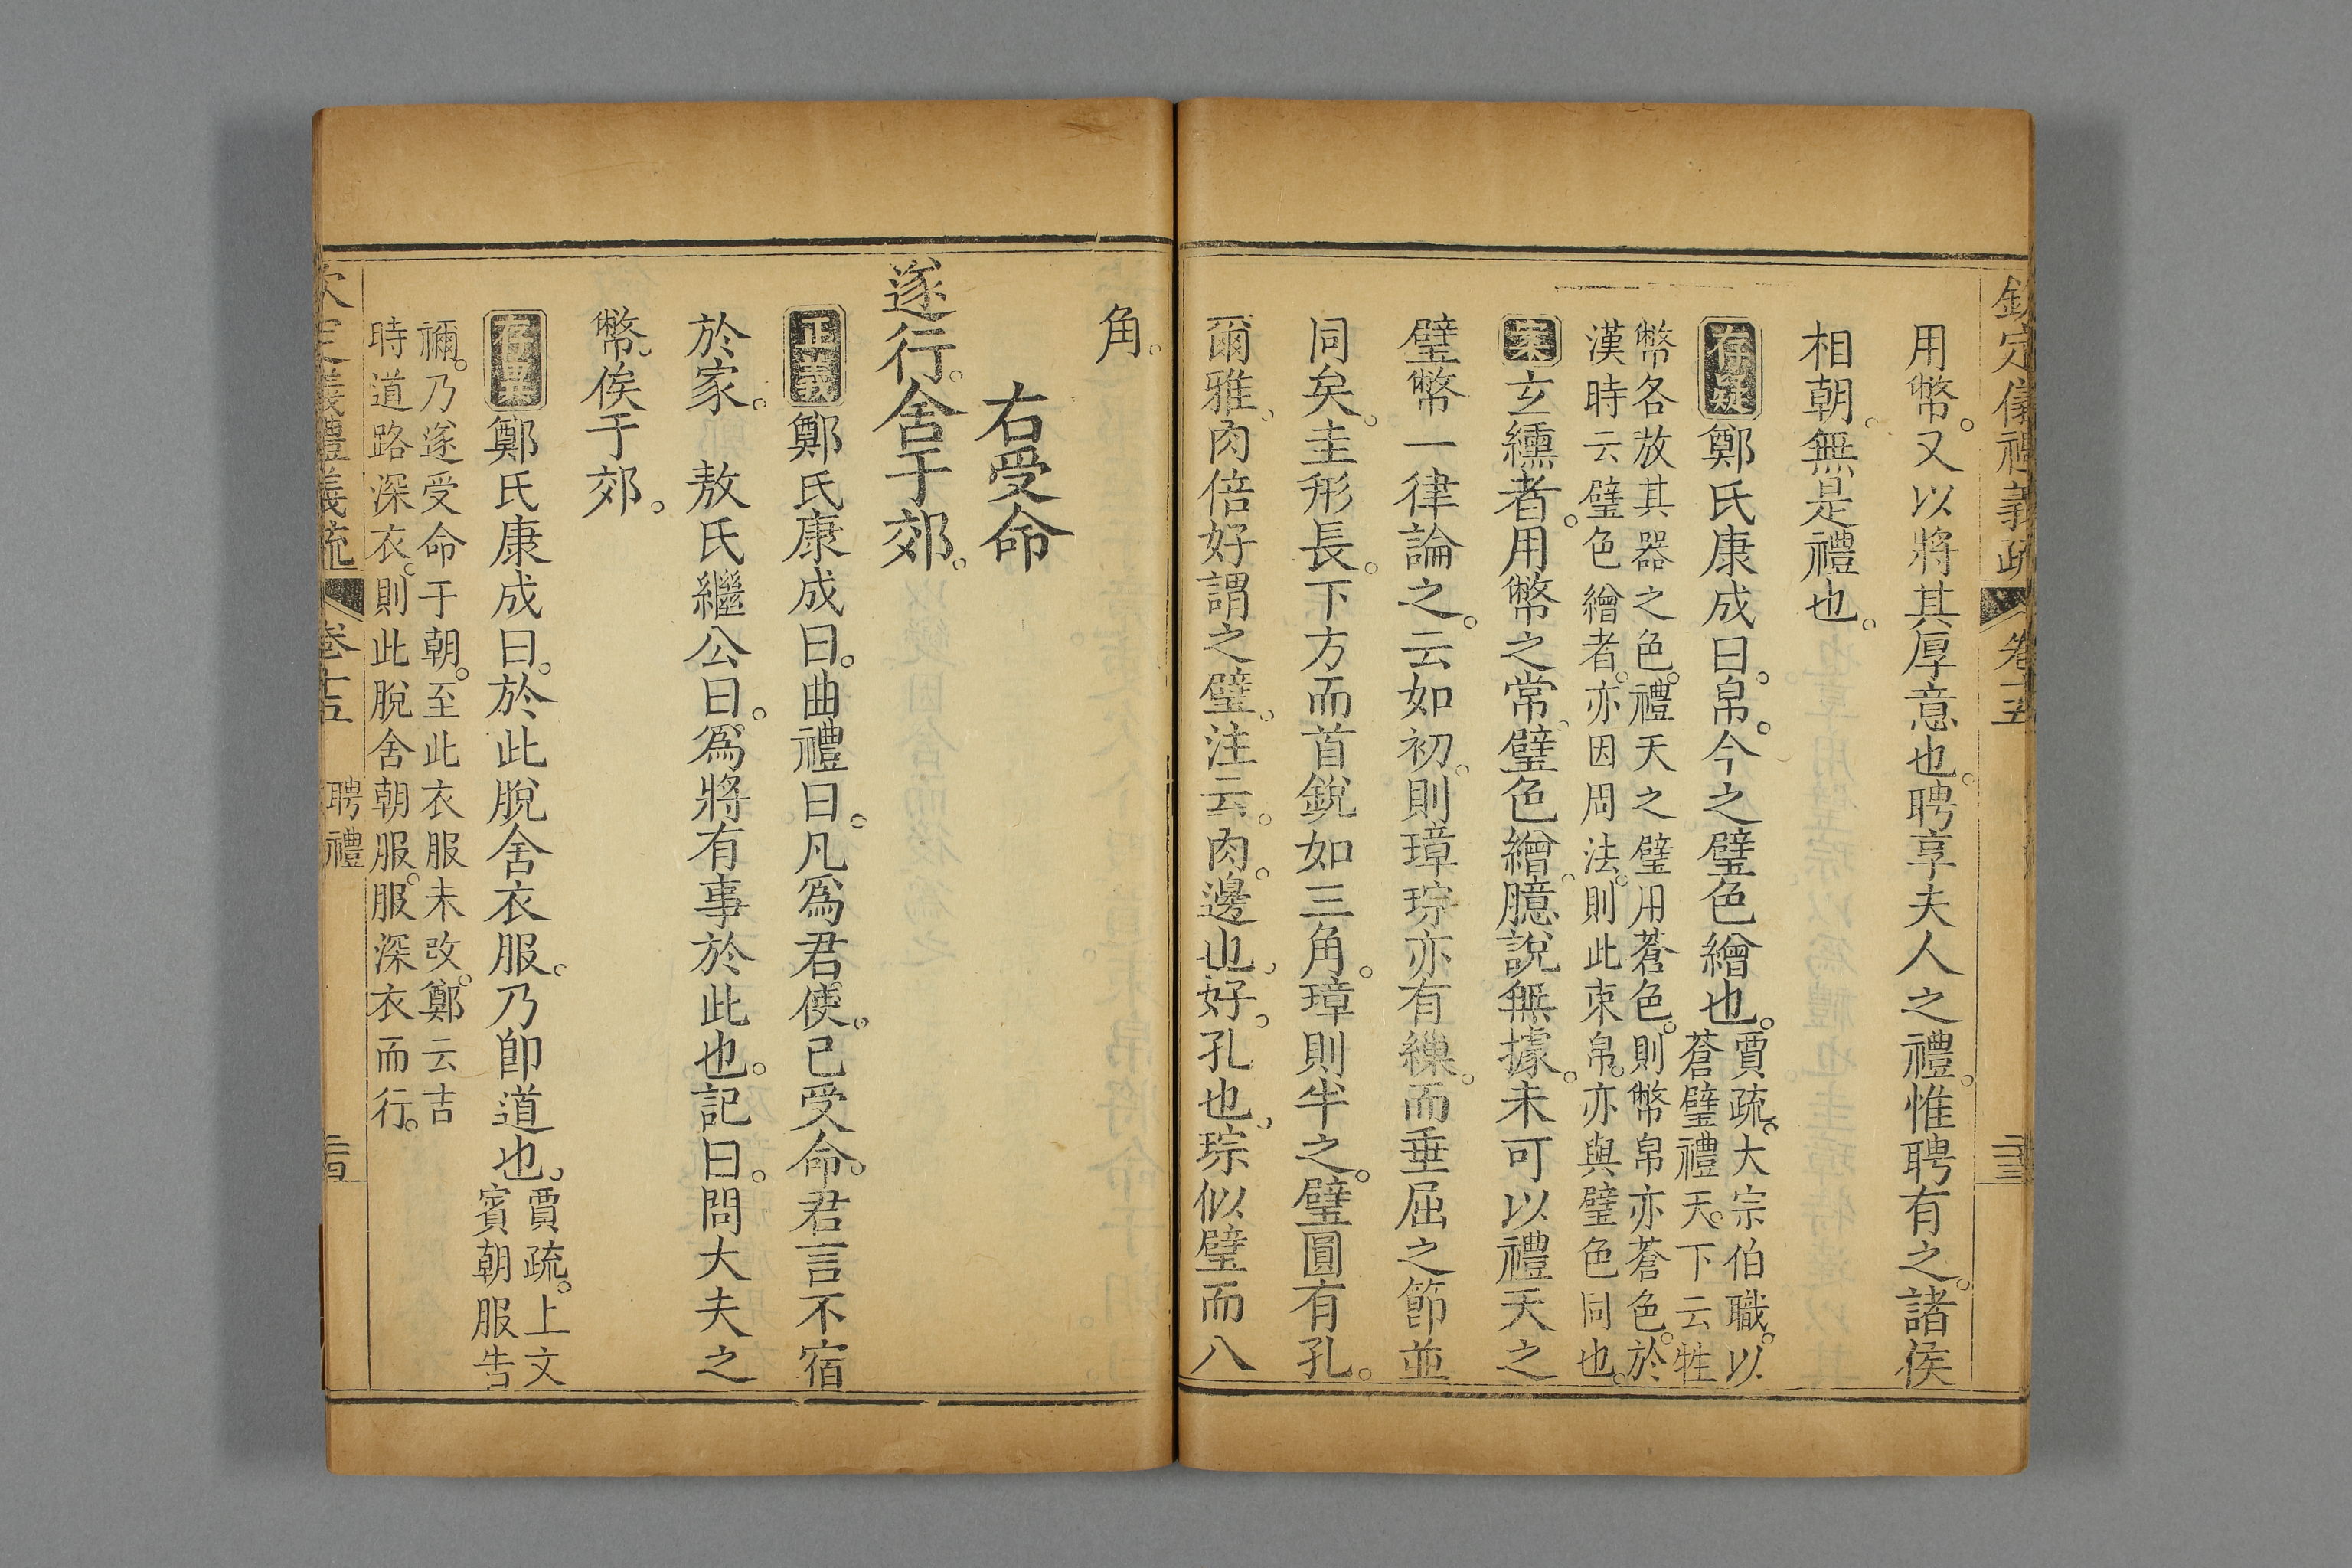 欽定儀禮義疏 卷十五 二十三
用幣。又以將其厚意也。聘享夫人之禮。惟聘有之。諸侯
相朝。無是禮也。
存疑 鄭氏康成曰。帛。今之璧色繒也。賈疏。大宗伯職。以
蒼璧禮天。下云牲
幣各放其器之色。禮天之璧用蒼色。則幣帛亦蒼色。於
漢時云璧色繒者。亦因周法。則此束帛。亦與璧色同也。
案 玄纁者。用幣之常。璧色繒。臆說無據。未可以禮天之
璧幣一律論之。云如初。則璋琮亦有繅。而垂屈之節並
同矣。圭形長。下方而首銳如三角。璋則半之。璧圓有孔。
爾雅。肉倍好謂之璧。注云。肉。邊也。好。孔也。琮似璧而八
角。
右受命
遂行。舍于郊。
正義 鄭氏康成曰。曲禮曰。凡爲君使。已受命。君言不宿
於家。 敖氏繼公曰。爲將有事於此也。記曰。問大夫之
幣。俟于郊。
存異 鄭氏康成曰。於此脫舍衣服。乃卽道也。賈疏。上文
賓朝服告
禰。乃遂受命于朝。至此衣服未改。鄭云吉
時道路深衣。則此脫舍朝服。服深衣而行。
義禮義疏 卷十五 聘禮